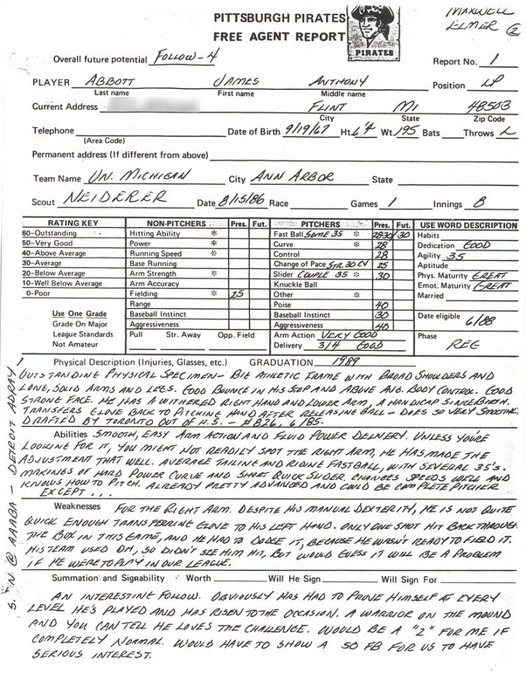 PITTSBURGH PIRATES
FREE AGENT REPORT
PIRATES
MAXWELL
ELMER 2
Overall future potential FOLLOW-4
Report No. 1
PLAYER ABBOTT JAMES ANTHONY Position LP
Last name First name Middle name
Current Address FLINT MI 48503
City State Zip Code
Telephone Date of Birth 9/19/67 Ht. 6'4 Wt. 195 Bats Throws L
(Area Code)
Permanent address (If different from above)
Team Name UN. MICHIGAN City ANN ARBOR State
Scout NEIDERER Date 8/15/86 Race Games 1 Innings 8
RATING KEY NON-PITCHERS Pres. Fut. PITCHERS Pres. Fut. USE WORD DESCRIPTION
60-Outstanding Hitting Ability * Fast Ball SOME 35 * 2830 30 Habits
50-Very Good Power * Curve * 28 Dedication GOOD
40-Above Average Running Speed * Control 28 Agility 35
30-Average Base Running Change of Pace 25 Aptitude
20-Below Average Arm Strength * Slider COUPLE 35 * 30 Phys. Maturity GREAT
10-Well Below Average Arm Accuracy Knuckle Ball Emot. Maturity GREAT
0-Poor Fielding * 25 Other * Married
Range Poise 40
Use One Grade Baseball Instinct Baseball Instinct 30 Date eligible 6/88
Grade On Major Aggressiveness Aggressiveness 40
League Standards Pull Str. Away Opp. Field Arm Action VERY GOOD Phase
Not Available Delivery 3/4 GOOD REG
Physical Description (Injuries, Glasses, etc.) GRADUATION 1989
OUTSTANDING PHYSICAL SPECIMEN - BIG ATHLETIC FRAME WITH BROAD SHOULDERS AND
LONG, SOLID ARMS AND LEGS. GOOD BOUNCE IN HIS STEP AND ABOVE AVG. BODY CONTROL. GOOD
STRONG FACE. HE HAS A WITHERED RIGHT HAND AND LOWER ARM, A HANDICAP SINCE BIRTH.
TRANSFERS GLOVE BACK TO PITCHING HAND AFTER RELEASING BALL - DOES SO VERY SMOOTHLY.
DRAFTED BY TORONTO OUT OF H.S. - #826, 6/85.
Abilities SMOOTH, EASY ARM ACTION AND FLUID POWER DELIVERY. UNLESS YOU'RE
LOOKING FOR IT, YOU MIGHT NOT READILY SPOT THE RIGHT ARM, HE HAS MADE THE
ADJUSTMENT THAT WELL. AVERAGE TAILING AND RIDING FASTBALL, WITH SEVERAL 35'S.
MAKINGS OF HARD POWER CURVE AND SHORT QUICK SLIDER. CHANGES SPEEDS WELL AND
KNOWS HOW TO PITCH. ALREADY PRETTY ADVANCED AND COULD BE COMPLETE PITCHER
EXCEPT . . .
Weaknesses FOR THE RIGHT ARM. DESPITE HIS MANUAL DEXTERITY, HE IS NOT QUITE
QUICK ENOUGH TRANSFERRING GLOVE TO HIS LEFT HAND. ONLY ONE SHOT HIT BACK THROUGH
THE BOX IN THIS GAME, AND HE HAD TO DODGE IT, BECAUSE HE WASN'T READY TO FIELD IT.
HIS TEAM USED DH, SO DIDN'T SEE HIM HIT, BUT WOULD GUESS IT WILL BE A PROBLEM
IF HE WERE TO PLAY IN OUR LEAGUE.
Summation and Signability Worth Will He Sign Will Sign For
AN INTERESTING FOLLOW. OBVIOUSLY HAS HAD TO PROVE HIMSELF AT EVERY
LEVEL HE'S PLAYED AND HAS RISEN TO THE OCCASION. A WARRIOR ON THE MOUND
AND YOU CAN TELL HE LOVES THE CHALLENGE. WOULD BE A "2" FOR ME IF
COMPLETELY NORMAL. WOULD HAVE TO SHOW A 50 FB FOR US TO HAVE
SERIOUS INTEREST.
@ AAABA - DETROIT ADRAY